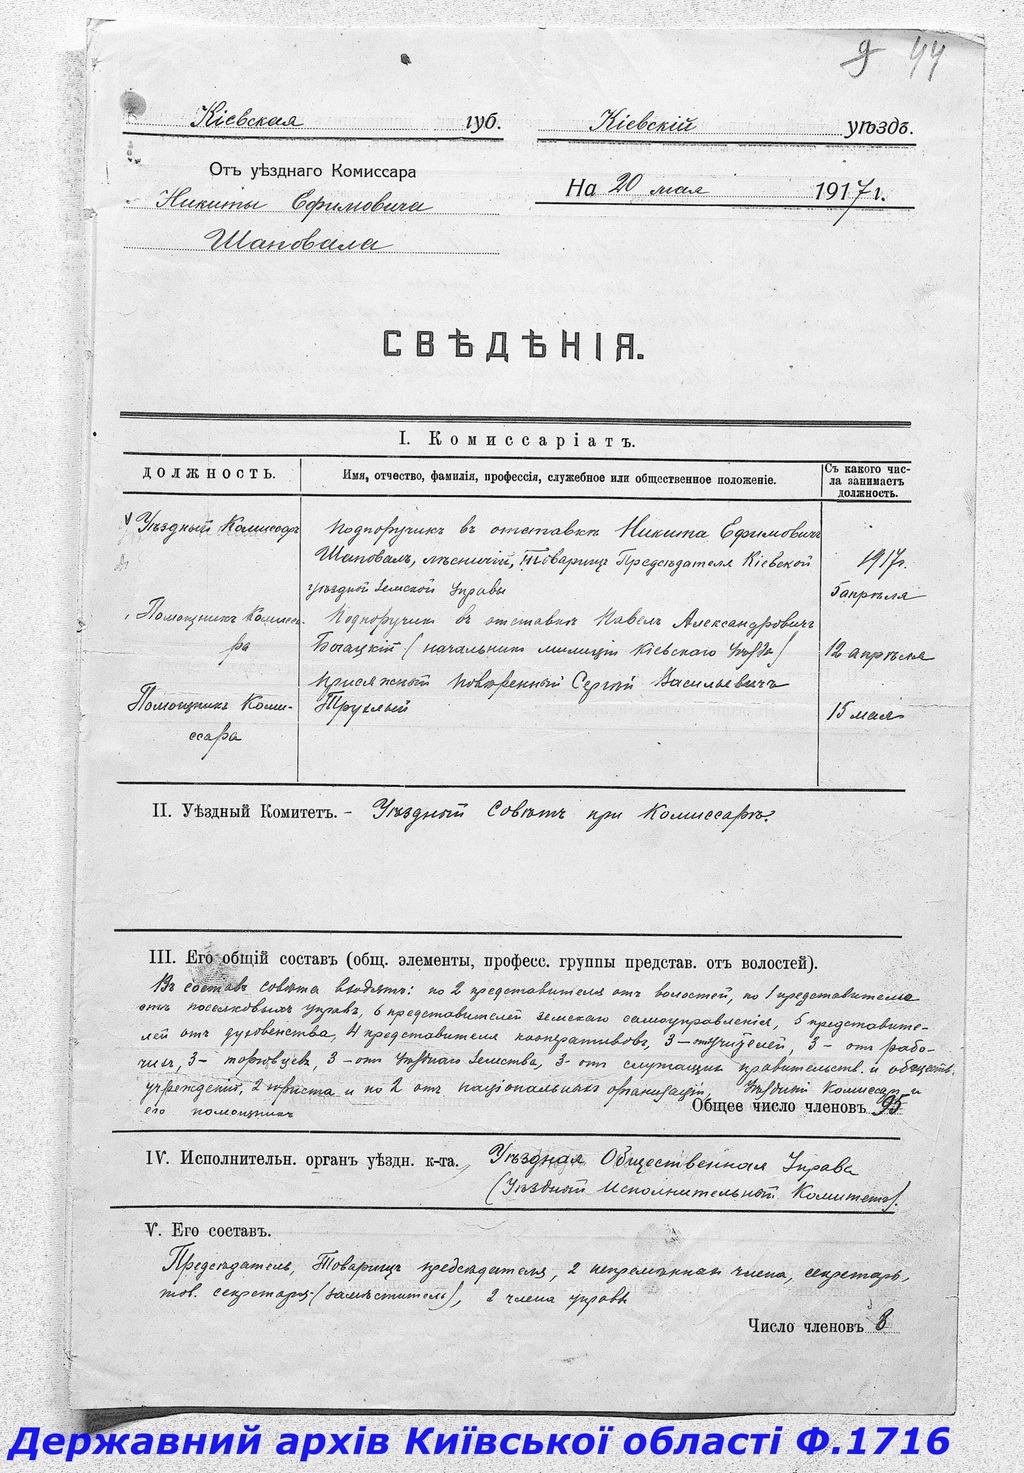 9 44
Кіевская губ. Кіевскій уѣздъ.
Отъ уѣзднаго Комиссара На 20 мая 1917 г.
Никиты Ефимовича
Шаповала
СВѢДѢНІЯ.
I. Комиссаріатъ.
ДОЛЖНОСТЬ. Имя, отчество, фамилія, профессія, служебное или общественное положеніе. Съ какого чис-
ла занимаетъ
должность.
Уѣздный Комиссаръ Подпоручик въ отставкѣ Никита Ефимович
Шаповал, лѣсничій, Товарищ Предсѣдателя Кіевской 1917г.
уѣздной Земской Управы 5 апрѣля
Помощник Комисса- Подпоручик въ отставкѣ Павел Александрович
ра Богацкій (начальник милиціи Кіевского Уѣзда) 12 апрѣля
присяжный повѣренный Сергѣй Васильевичъ
Помощник Коми- Труглый 15 мая
ссара
II. Уѣздный Комитетъ. - Уѣздный Совѣтъ при Комиссарѣ.
III. Его общій составъ (общ. элементы, професс. группы представ. отъ волостей).
Въ состав совѣта входятъ: по 2 представителя от волостей, по 1 представителю
от поселковых управ, 6 представителей земскаго самоуправленія, 5 представите-
лей от духовенства, 4 представителя кооперативов, 3 - от учителей, 3 - от рабо-
чих, 3 - торговцев, 3 - от Уѣзднаго Земства, 3 - от служащих правительств. и обществ.
учрежденій, 2 юриста и по 2 от національных организацій, Уѣздный Комиссар и
его помощник Общее число членовъ 95
IV. Исполнительн. органъ уѣздн. к-та. Уѣздная Общественная Управа
(Уѣздный Исполнительный Комитетъ).
V. Его составъ.
Предсѣдатель, Товарищ предсѣдателя, 2 непремѣнных члена, секретарь,
тов. секретаря (замѣститель), 2 члена управы
Число членовъ 8
Державний архів Київської області Ф.1716